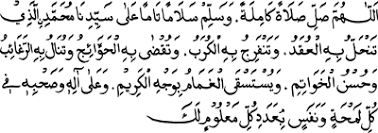 اللّٰهُمَّ صَلِّ صَلَاةً كَامِلَةً. وَسَلِّمْ سَلَامًا تَامًّا عَلَى سَيِّدِنَا مُحَمَّدِ ِۨالَّذِي
تَنْحَلُّ بِهِ الْعُقَدُ. وَتَنْفَرِجُ بِهِ الْكُرَبُ. وَتُقْضَى بِهِ الْحَوَائِجُ وَتُنَالُ بِهِ الرَّغَائِبُ
وَحُسْنُ الْخَوَاتِمِ. وَيُسْتَسْقَى الْغَمَامُ بِوَجْهِهِ الْكَرِيمِ. وَعَلَى آلِهِ وَصَحْبِهِ فِي
كُلِّ لَمْحَةٍ وَنَفَسٍ بِعَدَدِ كُلِّ مَعْلُومٍ لَكَ